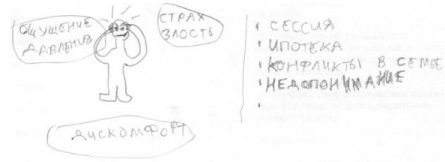 ОЩУЩЕНИЕ
ДАВЛЕНИЯ
СТРАХ
ЗЛОСТЬ
ДИСКОМФОРТ
• СЕССИЯ
• ИПОТЕКА
• КОНФЛИКТЫ В СЕМЬЕ
• НЕДОПОНИМАНИЕ
•